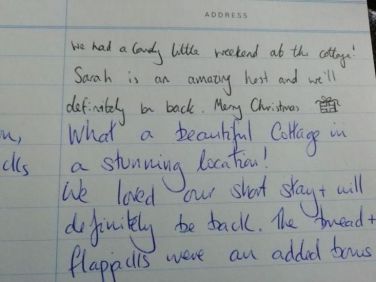 ADDRESS
We had a lovely little weekend at the cottage!
Sarah is an amazing host and we'll
definitely be back. Merry Christmas
What a beautiful Cottage in
a stunning location!
We loved our short stay + will
definitely be back. The bread +
flapjacks were an added bonus